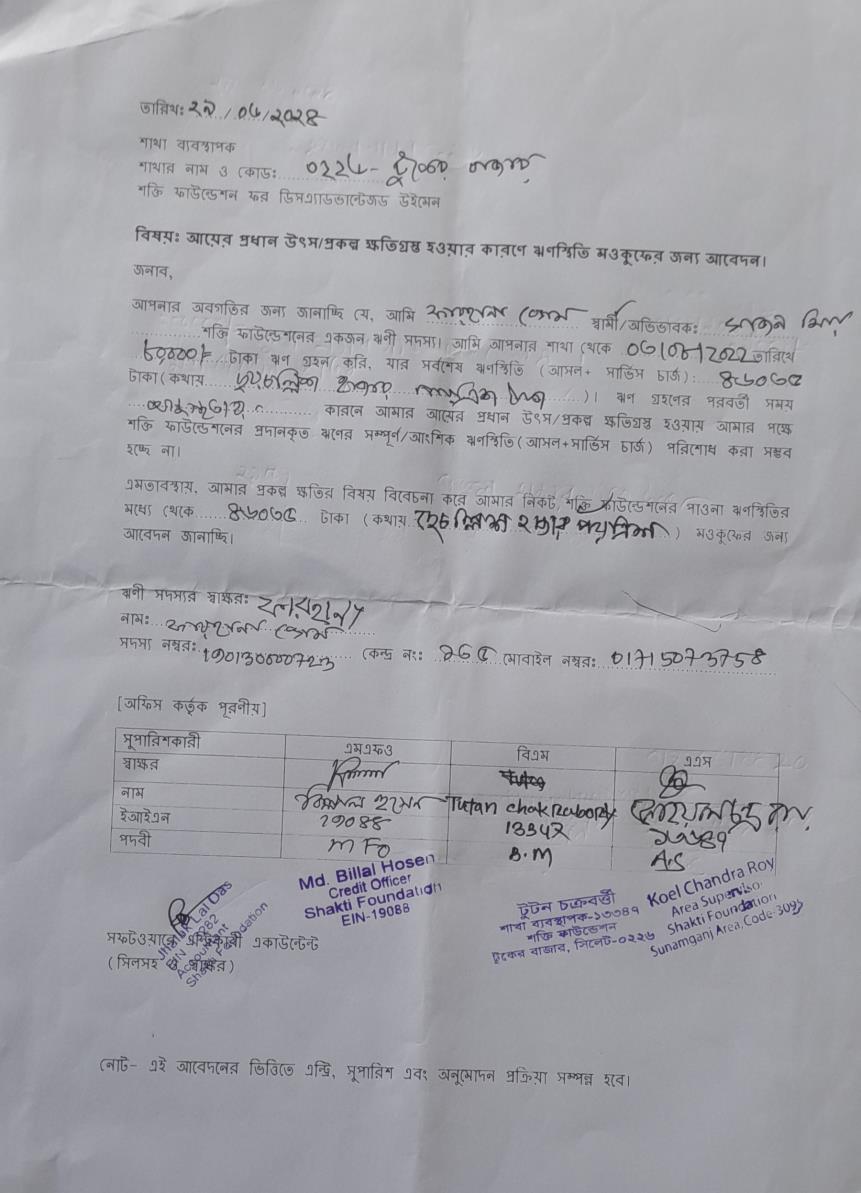 তারিথ: ২৯/০৬/২০২৪
শাথা ব্যবস্থাপক
শাথার নাম ও কোড: ০২২৬-
শক্তি ফাউন্ডেশন ফর ডিসএ্যাডভান্টেজড উইমেন
বিষয়: আয়ের প্রধান উৎস/প্রকল্প ক্ষতিগ্রস্ত হওয়ার কারণে ঋণস্থিতি মওকুফের জন্য আবেদন।
জনাব,
আপনার অবগতির জন্য জানাচ্ছি যে, আমি ফারহানা বেগম স্বামী/অভিভাবক: মিয়া
শক্তি ফাউন্ডেশনের একজন ঋণী সদস্য। আমি আপনার শাথা থেকে তারিথে
টাকা ঋণ গ্রহন করি, যার সর্বশেষ ঋণস্থিতি (আসল+ সার্ভিস চার্জ): ৪৬০৩৫
টাকা(কথায় হাজার পয়ত্রিশ টাকা )। ঋণ গ্রহণের পরবর্তী সময়
কারনে আমার আয়ের প্রধান উৎস/প্রকল্প ক্ষতিগ্রস্ত হওয়ায় আমার পক্ষে
শক্তি ফাউন্ডেশনের প্রদানকৃত ঋণের সম্পূর্ণ/আংশিক ঋণস্থিতি(আসল+সার্ভিস চার্জ) পরিশোধ করা সম্ভব
হচ্ছে না।
এমতাবস্থায়, আমার প্রকল্প ক্ষতির বিষয় বিবেচনা করে আমার নিকট শক্তি ফাউন্ডেশনের পাওনা ঋণস্থিতির
মধ্যে থেকে ৪৬০৩৫ টাকা (কথায় হাজার পয়ত্রিশ ) মওকুফের জন্য
আবেদন জানাচ্ছি।
ঋণী সদস্যর স্বাক্ষর: ফারহানা
নাম: ফারহানা বেগম
সদস্য নম্বর: কেন্দ্র নং: মোবাইল নম্বর: 01715073758
[অফিস কর্তৃক পূরণীয়]
সুপারিশকারী এমএফও বিএম এএস
স্বাক্ষর
নাম বিল্লাল হোসেন Tutan Chakraborty
ইআইএন 19088 13347 ১৩৫৪৭
পদবী MFO B.M A.S
Md. Billal Hosen
Credit Officer
Shakti Foundation
EIN-19088
টুটন চক্রবর্ত্তী
শাখা ব্যবস্থাপক-১৩৩৪৭
শক্তি ফাউন্ডেশন
টুকের বাজার, সিলেট-০২২৬
Koel Chandra Roy
Area Supervisor
Shakti Foundation
Sunamganj Area, Code-3097
Lal Das
Accountant
Shakti Foundation
সফটওয়্যারে এন্ট্রিকারী একাউন্টেন্ট
(সিলসহ স্বাক্ষর)
নোট- এই আবেদনের ভিত্তিতে এন্ট্রি, সুপারিশ এবং অনুমোদন প্রক্রিয়া সম্পন্ন হবে।